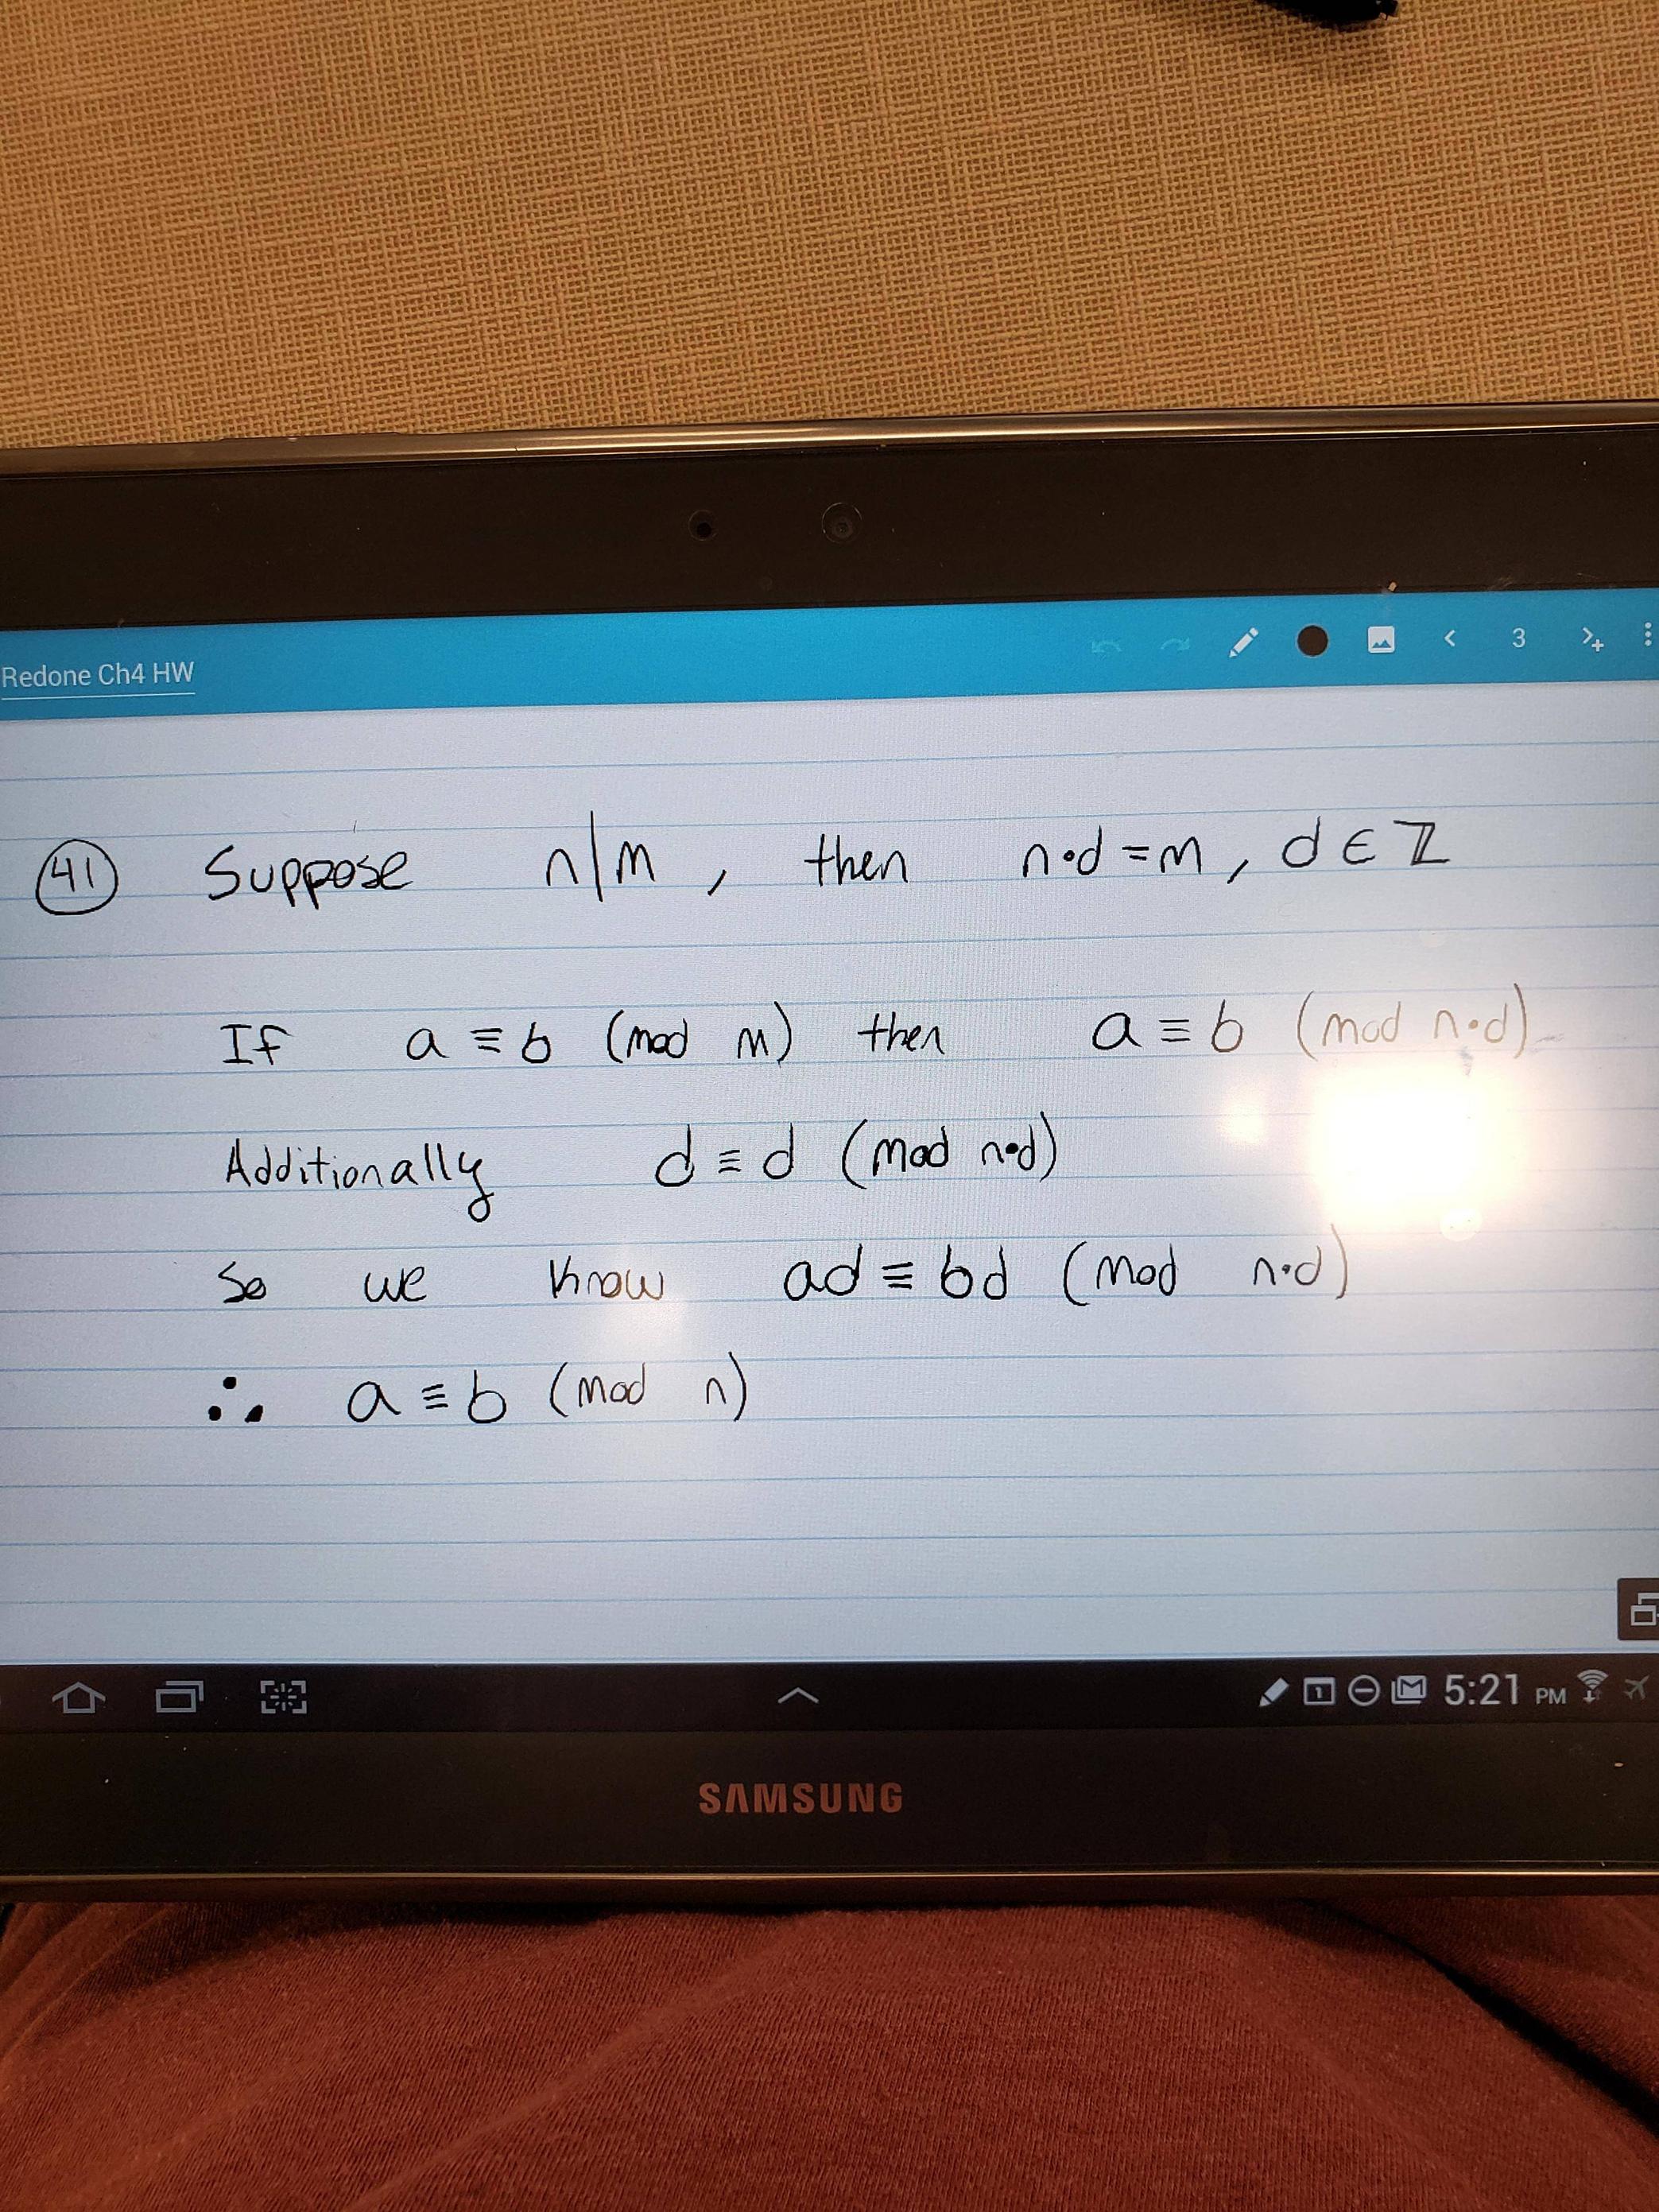 Redone Ch4 HW
3
41 Suppose n|m, then n·d=m, d∈ℤ
If a≡b (mod m) then a≡b (mod n·d)
Additionally d≡d (mod n·d)
So we know ad≡bd (mod n·d)
∴ a≡b (mod n)
1 5:21 PM
SAMSUNG